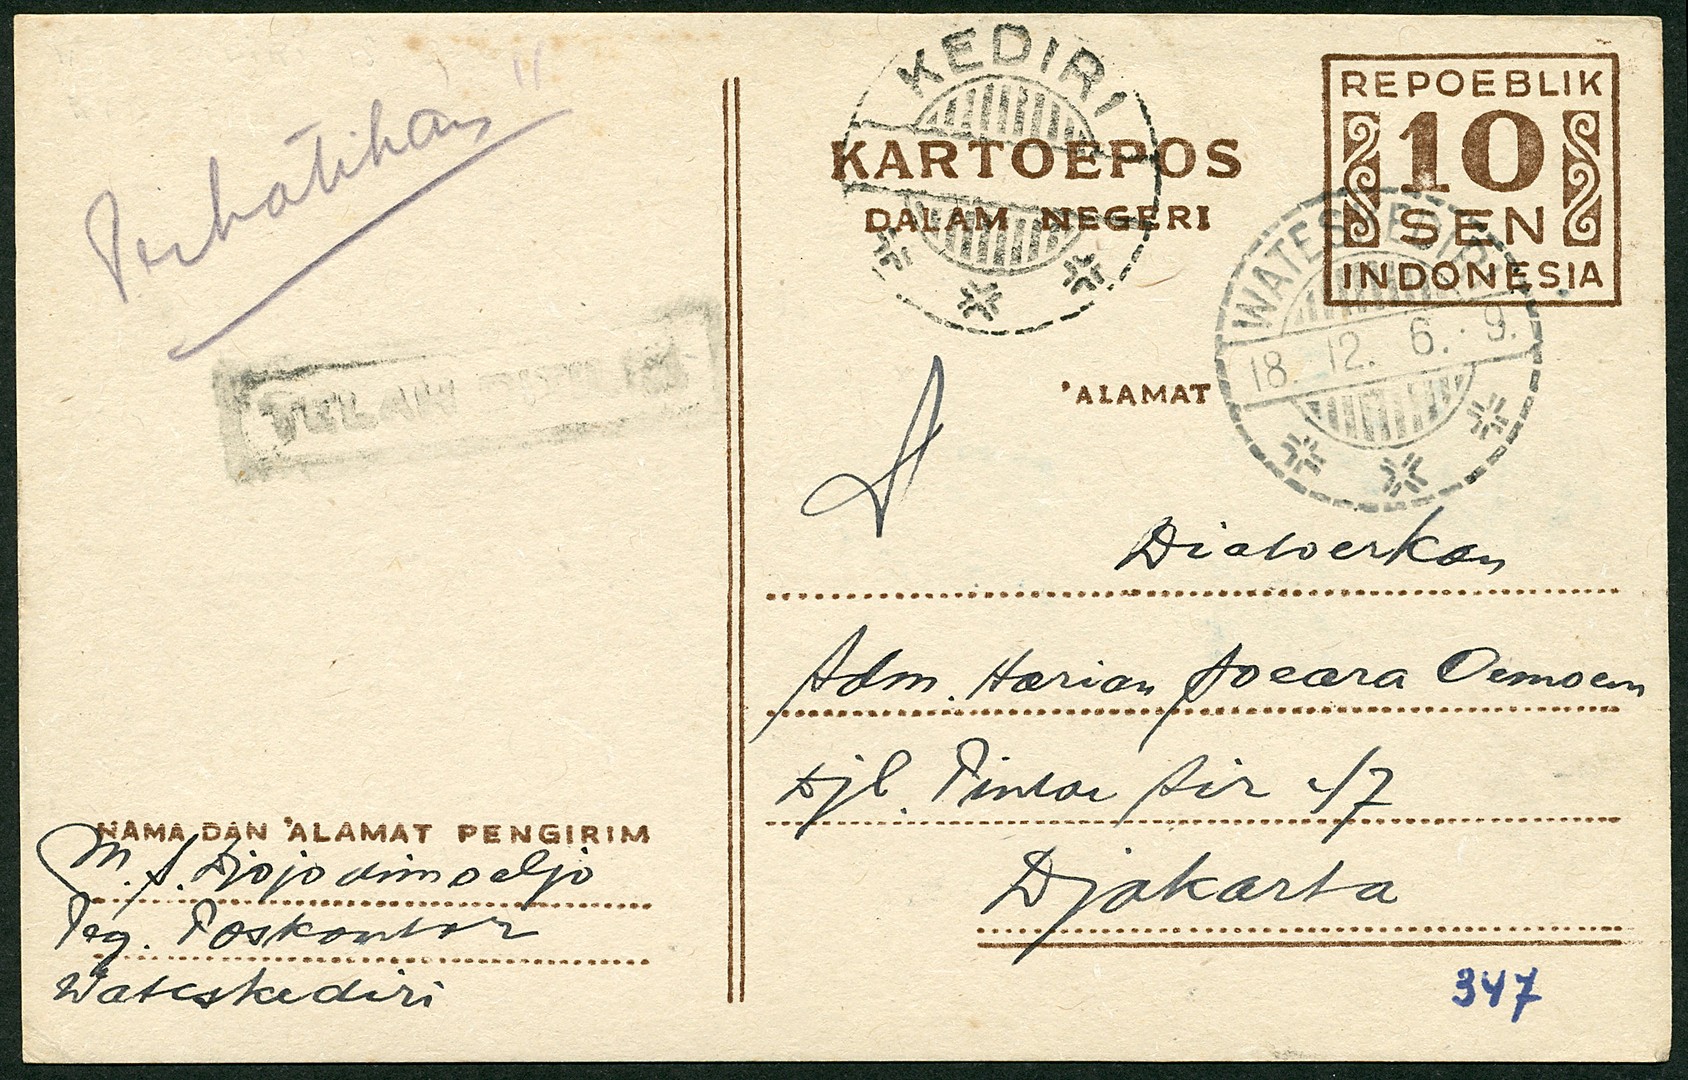 Perhatihan
"
TELAH
NAMA DAN 'ALAMAT PENGIRIM
M. S. Djojodimoeljo
Peg. Poskantor
Wateskediri
KEDIRI
KARTOEPOS
DALAM NEGERI
REPOEBLIK
10
SEN
INDONESIA
WATES KEDIRI
18. 12. 6. 9.
'ALAMAT
Diatoerkan
Adm. Harian Soeara Oemoem
Djl. Pintoe Air 47
Djakarta
347